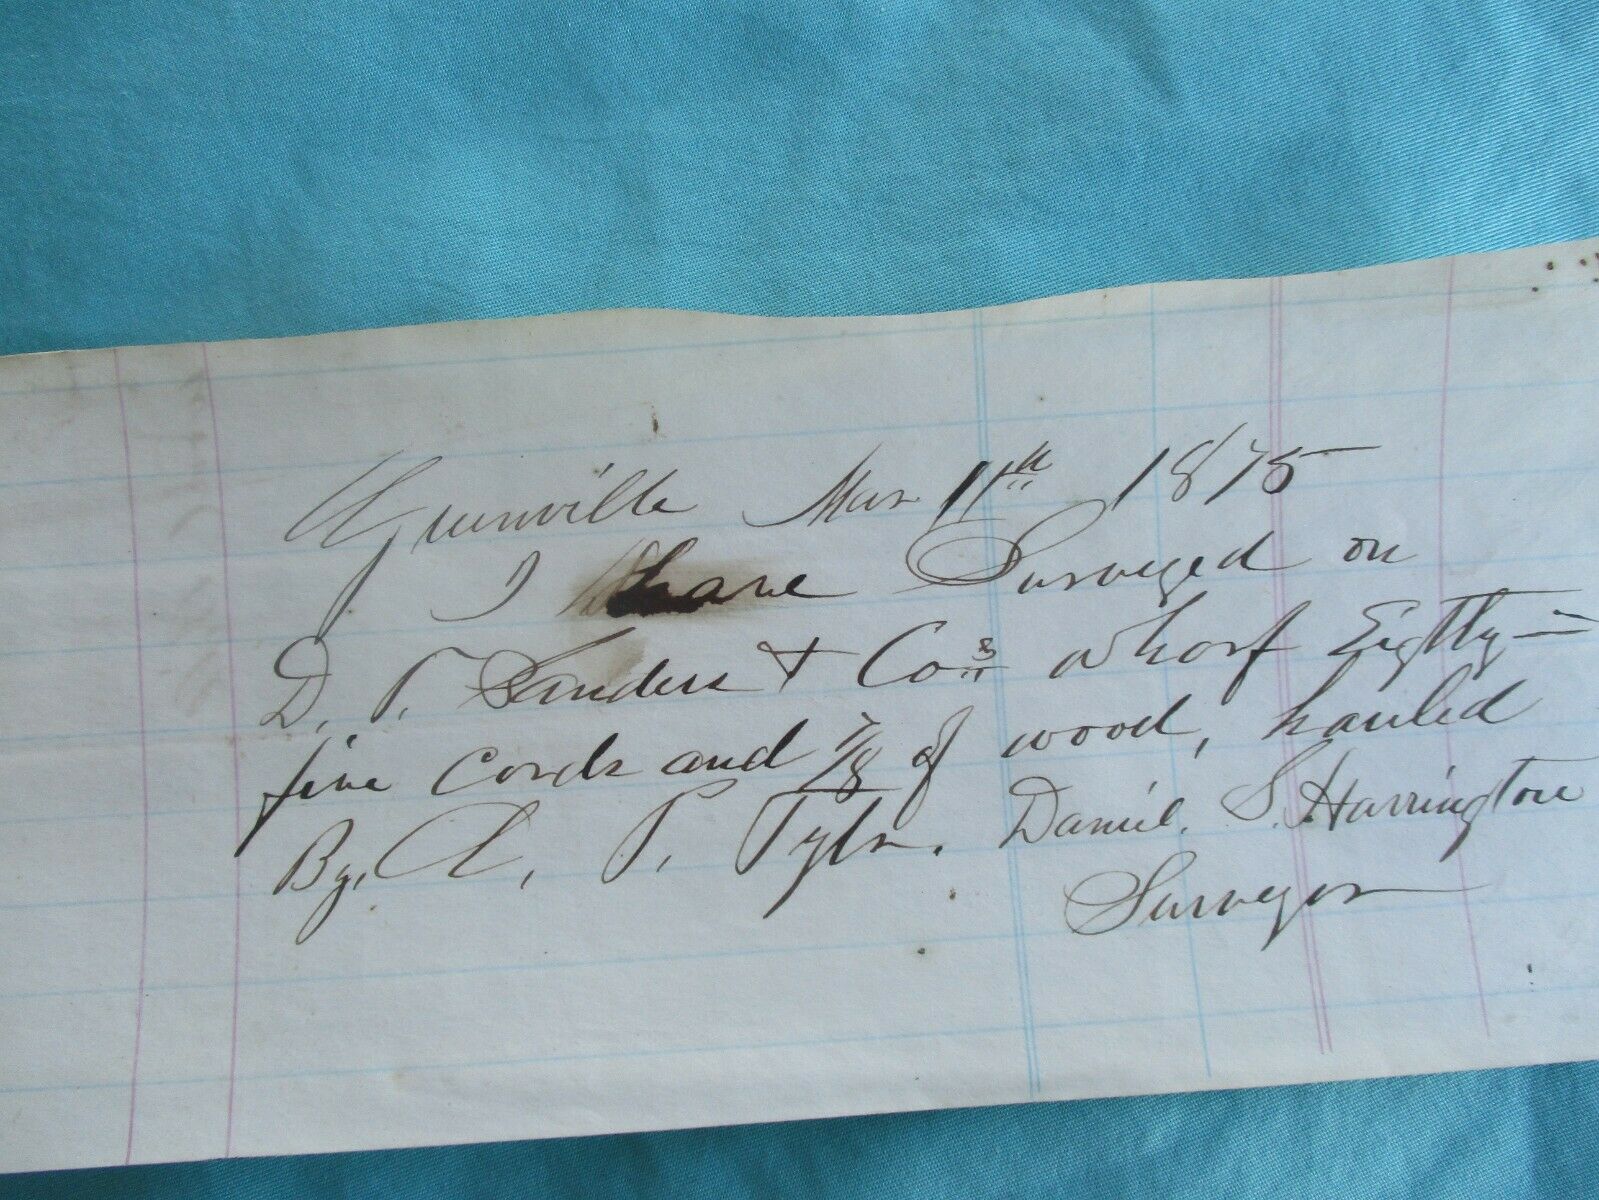 Greenville Mar 11th 1875
I have Surveyed on
D. T. Sanders & Cos wharf Eighty=
five cords and 7/8 of wood, hauled
By, A. P. Tyler. Daniel. S. Harrington
Surveyor